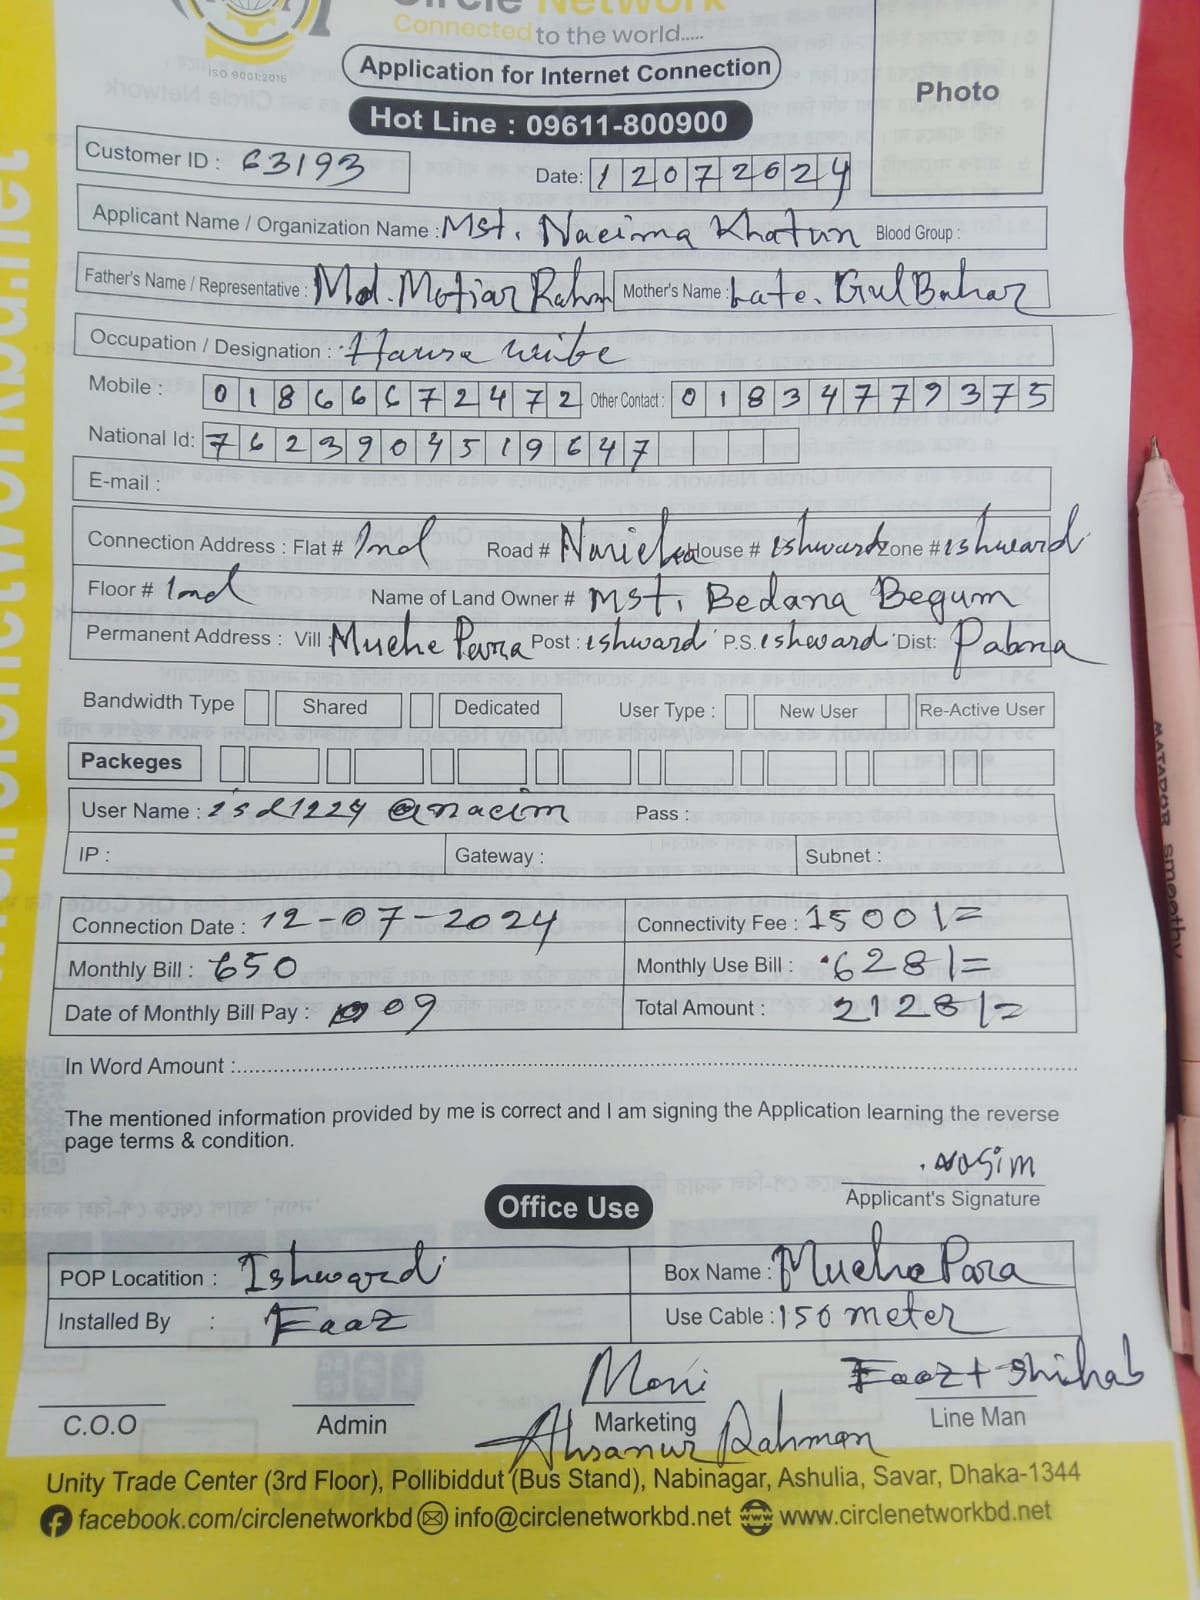 Circle Network
Connected to the world.....
ISO 9001:2015
Application for Internet Connection
Photo
Hot Line : 09611-800900
Customer ID : 63193
Date: 12072024
Applicant Name / Organization Name : Mst. Nacima Khatun Blood Group :
Father's Name / Representative : Md. Motiar Rahm Mother's Name : Late. Gul Bahar
Occupation / Designation : Hawse wibe
Mobile : 01866672472 Other Contact : 01834779375
National Id: 7623904519647
E-mail :
Connection Address : Flat # 2nd Road # House # ishward Zone # ishward
Floor # 2nd Name of Land Owner # Mst. Bedana Begum
Permanent Address : Vill Muche Para Post : ishward P.S. ishward Dist: Pabna
Bandwidth Type Shared Dedicated User Type : New User Re-Active User
Packeges
User Name : isd1224 @nacim Pass :
IP : Gateway : Subnet :
Connection Date : 12-07-2024 Connectivity Fee : 1500/=
Monthly Bill : 650 Monthly Use Bill : 628/=
Date of Monthly Bill Pay : 09 Total Amount : 2128/=
In Word Amount :
The mentioned information provided by me is correct and I am signing the Application learning the reverse
page terms & condition.
Nasim
Applicant's Signature
Office Use
POP Locatition : Ishwardi Box Name : Muche Para
Installed By : Faaz Use Cable : 150 meter
Moni Faaz + Shihab
C.O.O Admin Marketing Line Man
Ahsanur Rahman
Unity Trade Center (3rd Floor), Pollibiddut (Bus Stand), Nabinagar, Ashulia, Savar, Dhaka-1344
facebook.com/circlenetworkbd info@circlenetworkbd.net www.circlenetworkbd.net
MATADOR smoothy